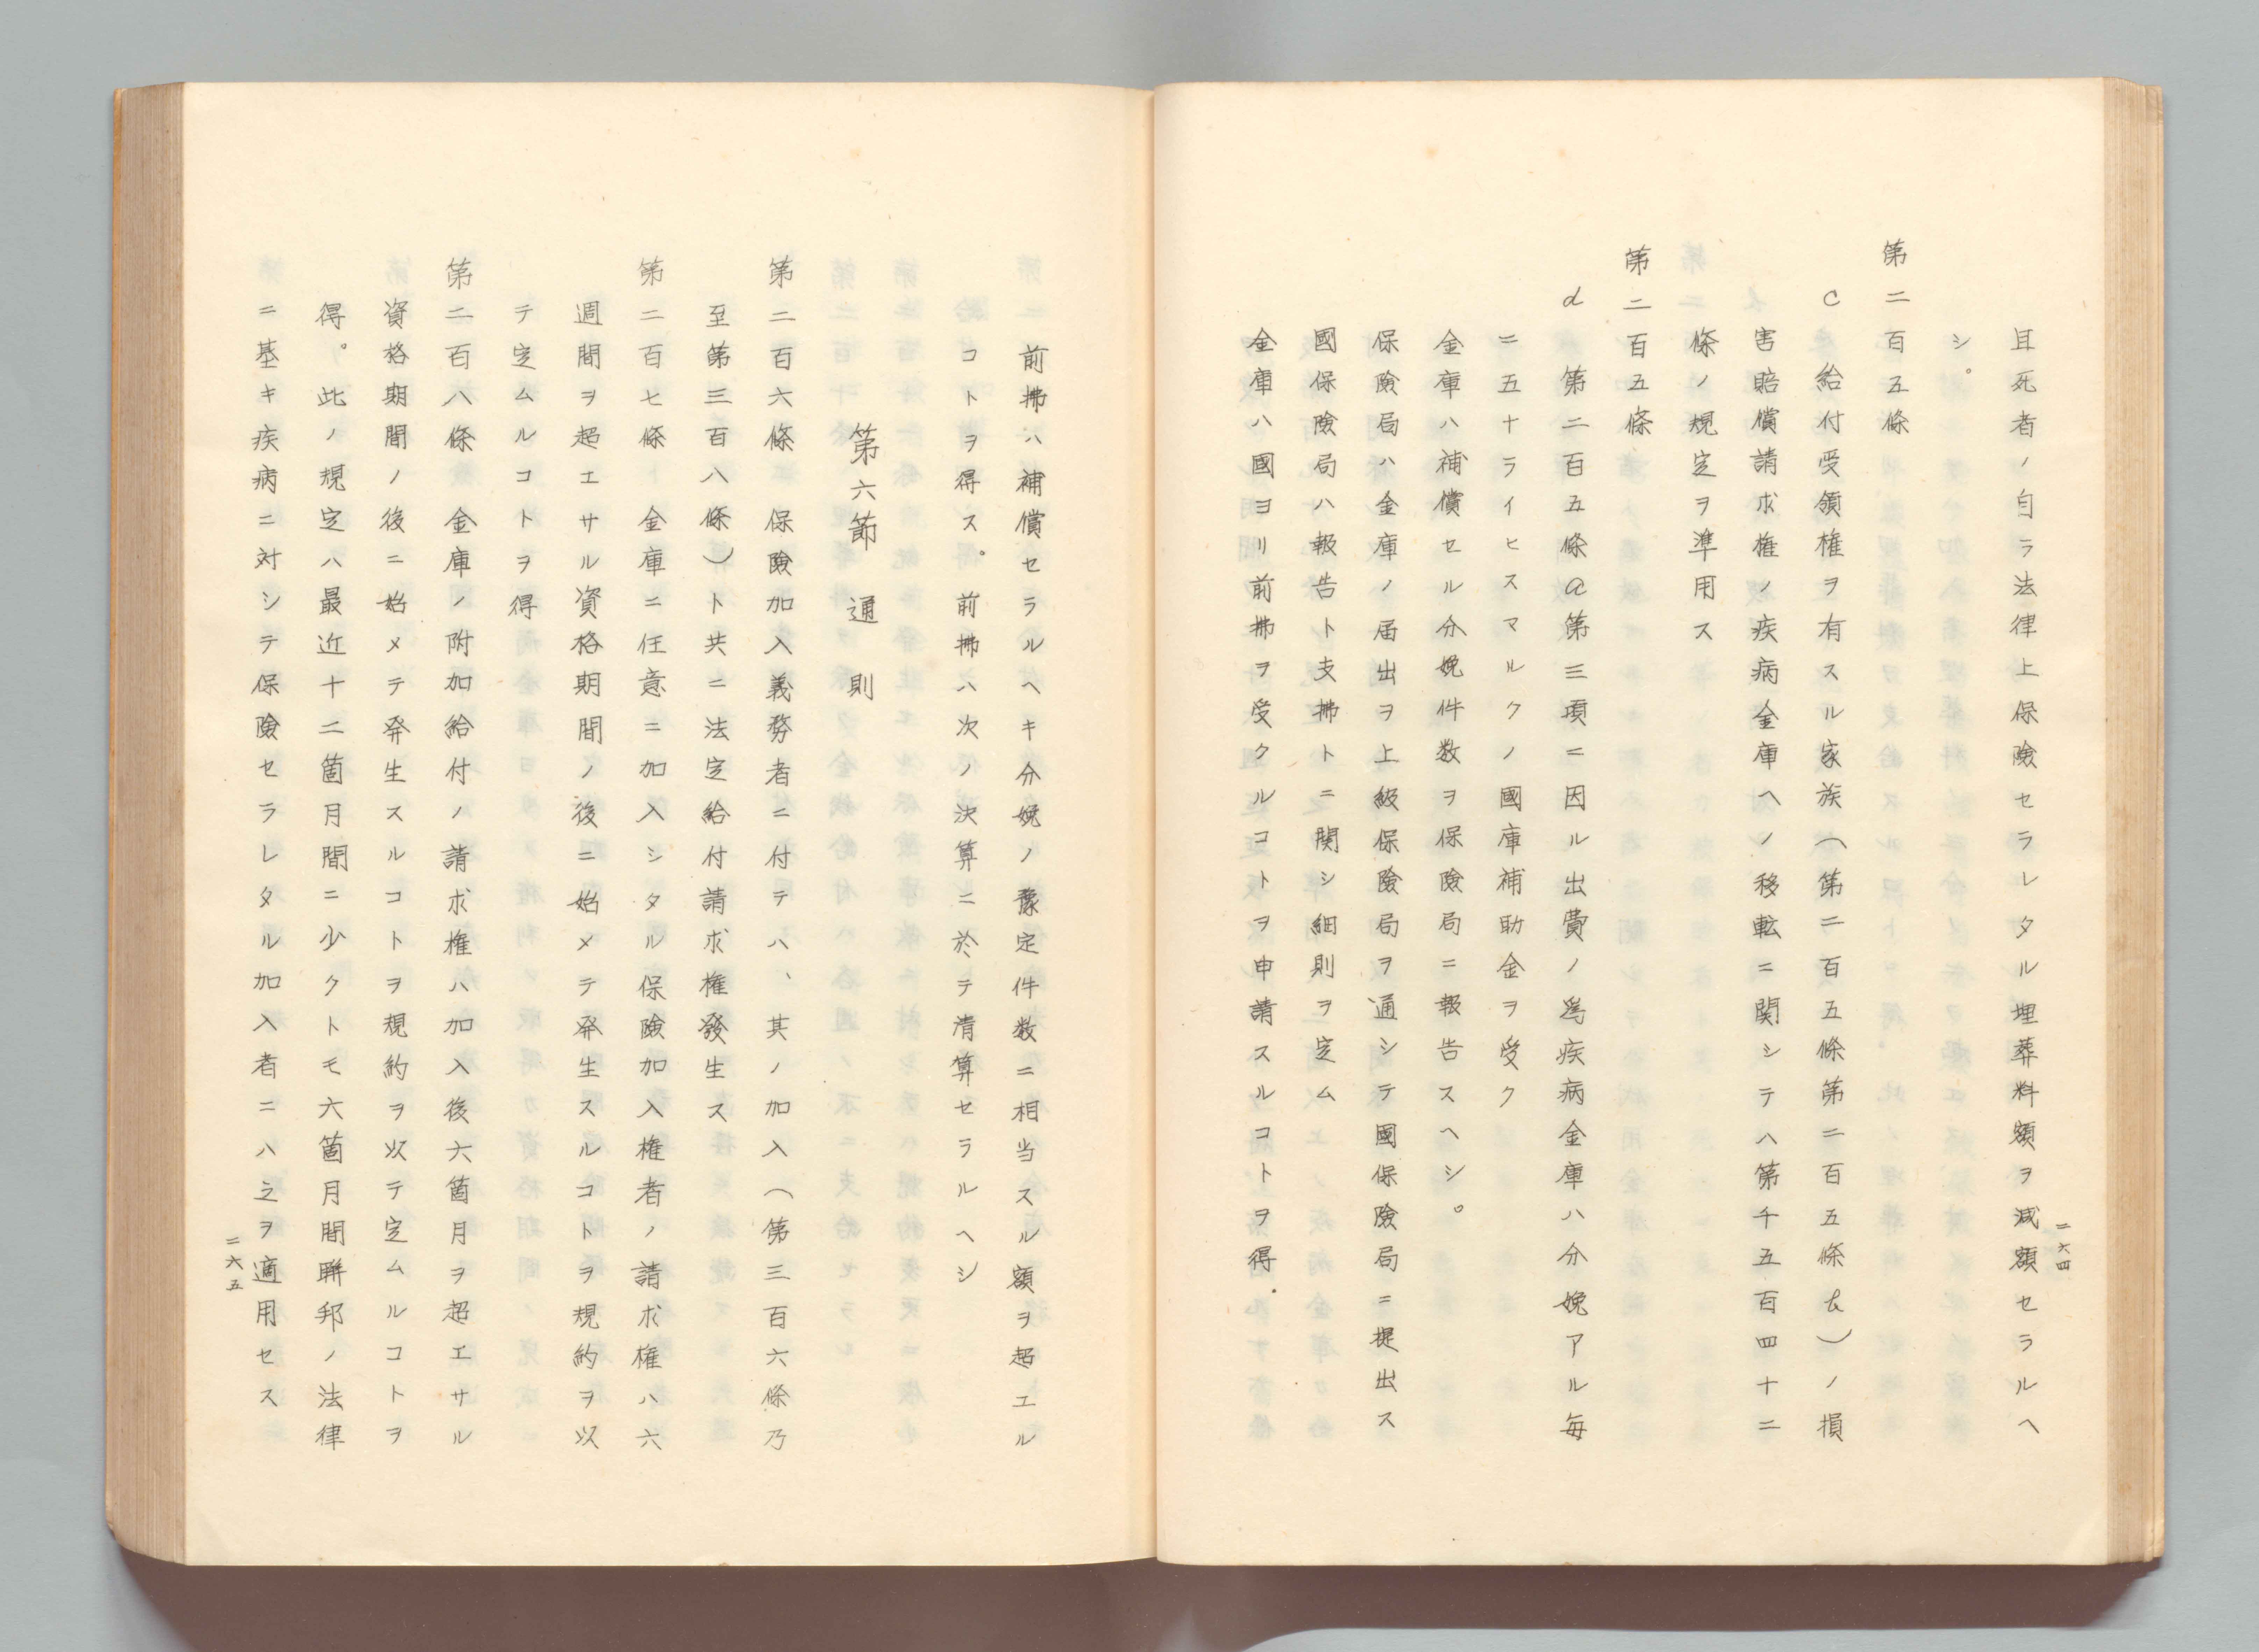 且死者ノ自ラ法律上保險セラレタル埋葬料額ヲ減額セラルヘ
シ。
第二百五條
c 給付受領権ヲ有スル家族（第二百五條第二百五條b）ノ損
害賠償請求権ノ疾病金庫ヘノ移転ニ関シテハ第千五百四十二
條ノ規定ヲ準用ス
第二百五條
d 第二百五條a第三項ニ因ル出費ノ爲疾病金庫ハ分娩アル毎
ニ五十ライヒスマルクノ國庫補助金ヲ受ク
金庫ハ補償セル分娩件数ヲ保險局ニ報告スヘシ。
保險局ハ金庫ノ届出ヲ上級保險局ヲ通シテ國保險局ニ提出ス
國保險局ハ報告ト支拂トニ関シ細則ヲ定ム
金庫ハ國ヨリ前拂ヲ受クルコトヲ申請スルコトヲ得.
二六四
前拂ハ補償セラルヘキ分娩ノ豫定件数ニ相当スル額ヲ超エル
コトヲ得ス。前拂ハ次ノ決算ニ於テ清算セラルヘシ
第六節 通則
第二百六條 保險加入義務者ニ付テハ、其ノ加入（第三百六條乃
至第三百八條）ト共ニ法定給付請求権發生ス
第二百七條 金庫ニ任意ニ加入シタル保險加入権者ノ請求権ハ六
週間ヲ超エサル資格期間ノ後ニ始メテ発生スルコトヲ規約ヲ以
テ定ムルコトヲ得
第二百八條 金庫ノ附加給付ノ請求権ハ加入後六箇月ヲ超エサル
資格期間ノ後ニ始メテ発生スルコトヲ規約ヲ以テ定ムルコトヲ
得。此ノ規定ハ最近十二箇月間ニ少クトモ六箇月間聯邦ノ法律
ニ基キ疾病ニ対シテ保險セラレタル加入者ニハ之ヲ適用セス
二六五